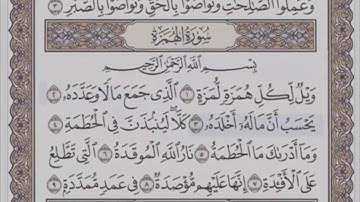 وَعَمِلُوا۟ ٱلصَّٰلِحَٰتِ وَتَوَاصَوْا۟ بِٱلْحَقِّ وَتَوَاصَوْا۟ بِٱلصَّبْرِ ٣
سُورَةُ الهُمَزَةِ
بِسْمِ ٱللَّهِ ٱلرَّحْمَٰنِ ٱلرَّحِيمِ
وَيْلٌ لِّكُلِّ هُمَزَةٍ لُّمَزَةٍ ١ ٱلَّذِى جَمَعَ مَالًا وَعَدَّدَهُۥ ٢
يَحْسَبُ أَنَّ مَالَهُۥٓ أَخْلَدَهُۥ ٣ كَلَّا ۖ لَيُنۢبَذَنَّ فِى ٱلْحُطَمَةِ ٤
وَمَآ أَدْرَىٰكَ مَا ٱلْحُطَمَةُ ٥ نَارُ ٱللَّهِ ٱلْمُوقَدَةُ ٦ ٱلَّتِى تَطَّلِعُ
عَلَى ٱلْأَفْـِٔدَةِ ٧ إِنَّهَا عَلَيْهِم مُّؤْصَدَةٌ ٨ فِى عَمَدٍ مُّمَدَّدَةٍۭ ٩